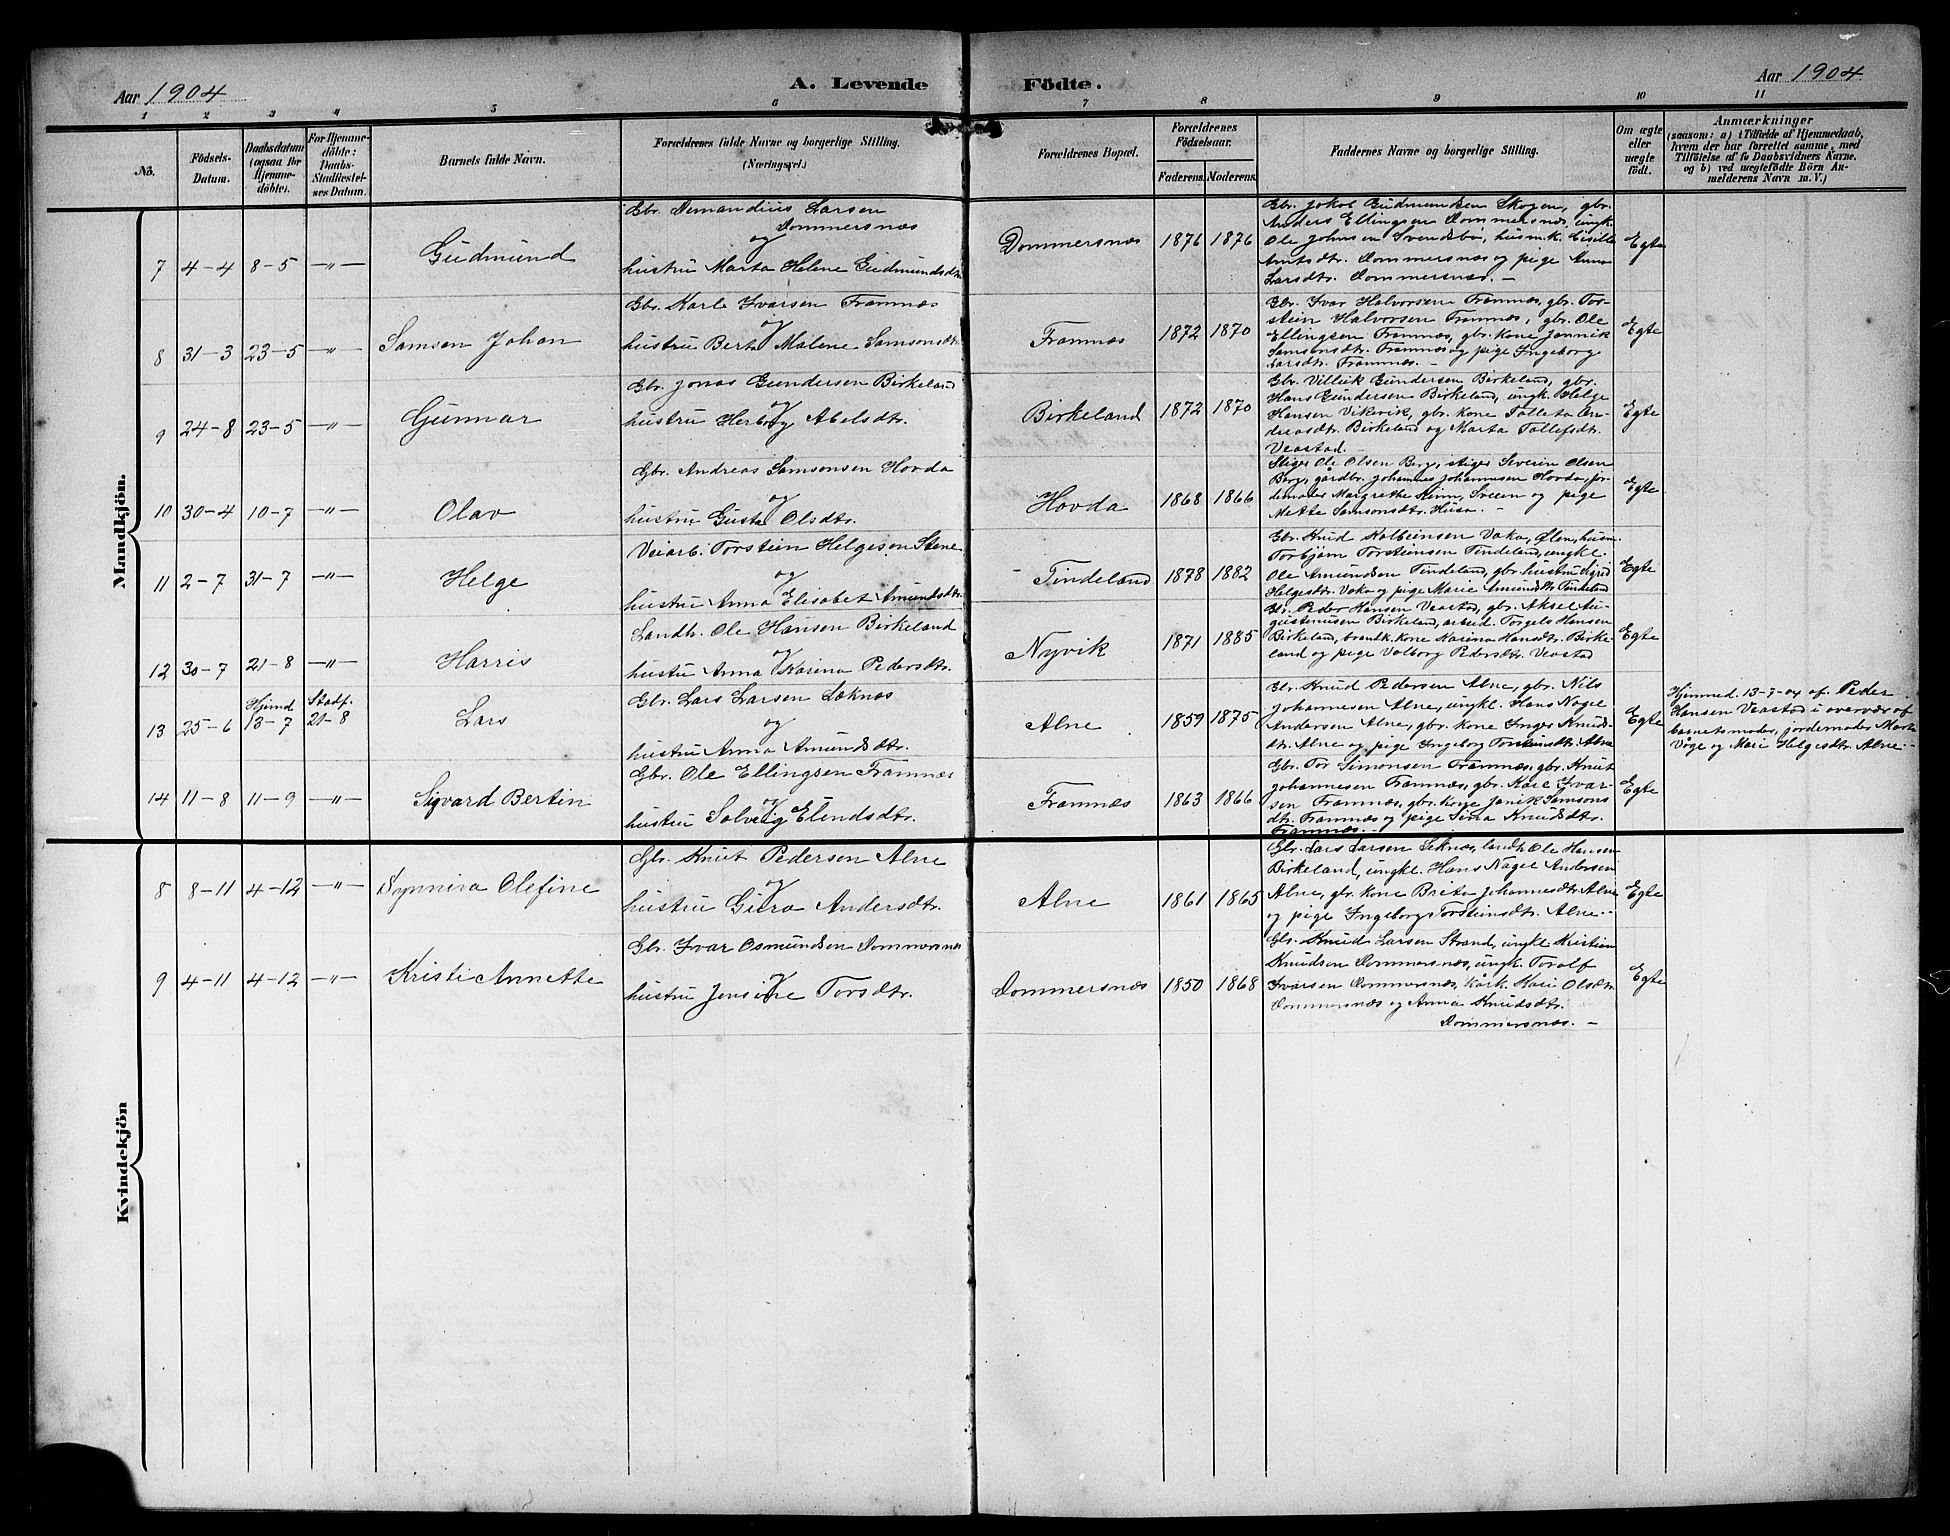 Aar 1904
A. Levende Födte.
Aar 1904
1 2 3 4 5 6 7 8 9 10 11
No.
Födsels-
Datum.
Daabsdatum
(ogsaa for
Hjemme-
döbte).
For Hjemme-
döbte:
Daabs-
Stadfæstel-
ses Datum.
Barnets fulde Navn.
Forældrenes fulde Navne og borgerlige Stilling.
(Næringsvei.)
Forældrenes Bopæl.
Forældrenes
Födselsaar.
Faderens. Moderens.
Faddernes Navne og borgerlige Stilling.
Om ægte
eller
uægte
födt.
Anmærkninger
(saasom: a) i Tilfælde af Hjemmedaab,
hvem der har forrettet samme, med
Tilföielse af to Daabsvidners Navne,
og b) ved uægtefödte Börn An-
melderens Navn m. V.)
Mandkjön.
7 4-4 8-5 —"— Gudmund
Gbr. Demandius Larsen
Dommersnæs
og
hustru Marta Helene Gudmundsdtr.
Dommersnæs 1876 1876
Gbr. Jokob Gudmundsen Skogen, gbr.
Anders Ellingsen Dommersnæs, ungk.
Ole Johnsen Svendsbö, husm.k. Sisilie
Amtsdtr. Dommersnæs og pige Anna
Larsdtr. Dommersnæs. —
Egte
8 31-3 23-5 —"— Samson Johan
Gbr. Karle Ivarsen Framnæs
og
hustru Berta Malene Samsonsdtr.
Framnæs 1872 1870
Gbr. Ivar Halvorsen Framnæs, gbr. Tor-
stein Halvorsen Framnæs, gbr. Ole
Ellingsen Framnæs, gbr. kone Jannik
Samsonsdtr. Framnæs og pige Ingeborg
Larsdtr. Framnæs. —
Egte
9 24-8 23-5 —"— Gunnar
Gbr. Jonas Gundersen Birkeland
og
hustru Herborg Abelsdtr.
Birkeland 1872 1870
Gbr. Villik Gundersen Birkeland, gbr.
Hans Gundersen Birkeland, ungk. Helge
Hansen Vikevik, gbr. kone Tolleta An-
dreasdtr. Birkeland og Marta Tollefsdtr.
Veastad. —
Egte
10 30-4 10-7 —"— Olav
Gbr. Andreas Samsonsen Hovda
og
hustru Gusta Olsdtr.
Hovda 1868 1866
Stiger Ole Olsen Berg, stiger Severin Olsen
Berg, gardbr. Johannes Johannesen Hovda, jor-
demoder Margrethe Sveen og pige
Mette Samsonsdtr. Husa. —
Egte
11 2-7 31-7 —"— Helge
Veiarb. Torstein Helgesen Stene
og
hustru Anna Elisabet Amundsdtr.
Tindeland 1878 1882
Gbr. Knud Kolbeinsen Vaka, Ølen, husm.
Torbjörn Torsteinsen Tindeland, ungk.
Ole Amundsen Tindeland, gbr. hustru Sigrid
Helgesdtr. Vaka og pige Marie Amundsdtr. Tindeland
Egte
12 30-7 21-8 —"— Harris
Landh. Ole Hansen Birkeland
og
hustru Anna Karina Pedersdtr.
Nyvik 1871 1885
Gbr. Peder Hansen Veastad, gbr. Aksel Au-
gustinusen Birkeland, arbeid. Torgels Hansen
Birkeland, kone Karina Hansdtr. Birke-
land og pige Valborg Pedersdtr. Veastad
Egte
13 25-6 Hjemd 13-7 Stadf. 21-8 Lars
Gbr. Lars Larsen Læknæs
og
hustru Anna Amundsdtr.
Alne 1859 1875
Gbr. Knud Pedersen Alne, gbr. Nils
Johannesen Alne, ungk. Hans Nagel
Andersen Alne, gbr. kone Inger Knuds-
dtr. Alne og pige Ingeborg Torsteinsdtr. Alne
Egte
Hjemmed. 13-7-04 af Peder
Hansen Veastad i overvær af
barnets moder, jordemoder Marta
Våge og Mari Helgesdtr. Alne. —
14 11-8 11-9 —"— Sigvard Bertin
Gbr. Ole Ellingsen Framnæs
og
hustru Solveig Elendsdtr.
Framnæs 1863 1866
Gbr. Tor Simonsen Framnæs, gbr. Knut
Johannesen Framnæs, gbr. Kare Ivar-
sen Framnæs, gbr. kone Janik Samsons
dtr. Framnæs og pige Sina Knudsdtr.
Framnæs. —
Egte
Kvindekjön
8 8-11 4-12 —"— Synnina Olefine
Gbr. Knut Pedersen Alne
og
hustru Guro Andersdtr.
Alne 1861 1865
Gbr. Lars Larsen Leknæs, landh. Ole Hansen
Birkeland, ungk. Hans Nagel Andersen
Alne, gbr. kone Brita Johannesdtr. Alne
og pige Ingeborg Torsteinsdtr. Alne. —
Egte
9 4-11 4-12 —"— Kristi Annette
Gbr. Ivar Osmundsen Dommersnæs
og
hustru Jensine Torsdtr.
Dommersnæs 1850 1868
Gbr. Knud Larsen Strand, ungk. Kristian
Knudsen Dommersnæs, ungk. Torolf
Ivarsen Dommersnæs, kårk. Kari Olsdtr.
Dommersnæs og Anna Knudsdtr.
Dommersnæs. —
Egte